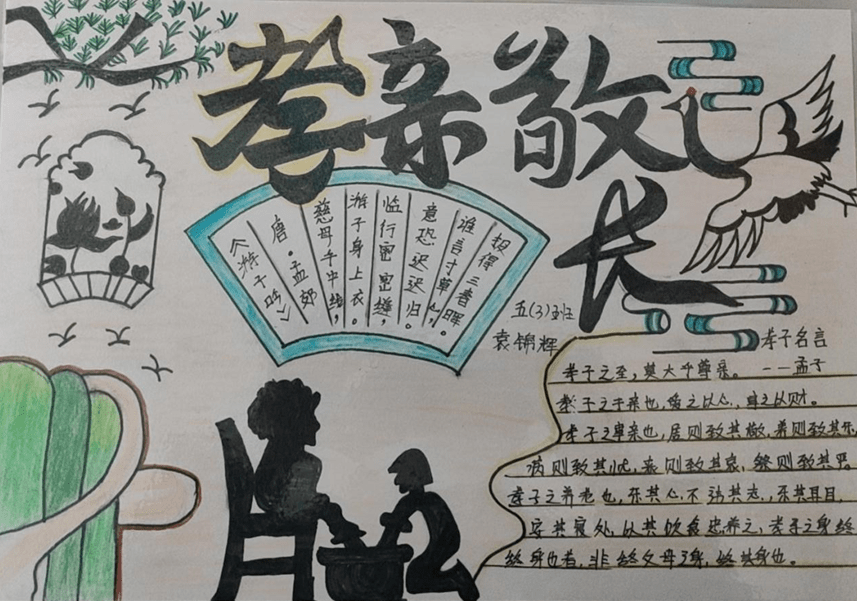 孝亲敬
长
《游子吟》
唐·孟郊
慈母手中线，
游子身上衣。
临行密密缝，
意恐迟迟归。
谁言寸草心，
报得三春晖。
五(3)班
袁锦辉
孝子名言
孝子之至，莫大乎尊亲。——孟子
孝子之于亲也，爱之以心，
孝子之事亲也，居则致其敬，养则致其乐
病则致其忧，丧则致其哀，祭则致其严
孝子之养老也，乐其心，不违其志，乐其耳目，
安其寝处，以其饮食忠养之，孝子之身终
终身也者，非终父母之身，终其身也。